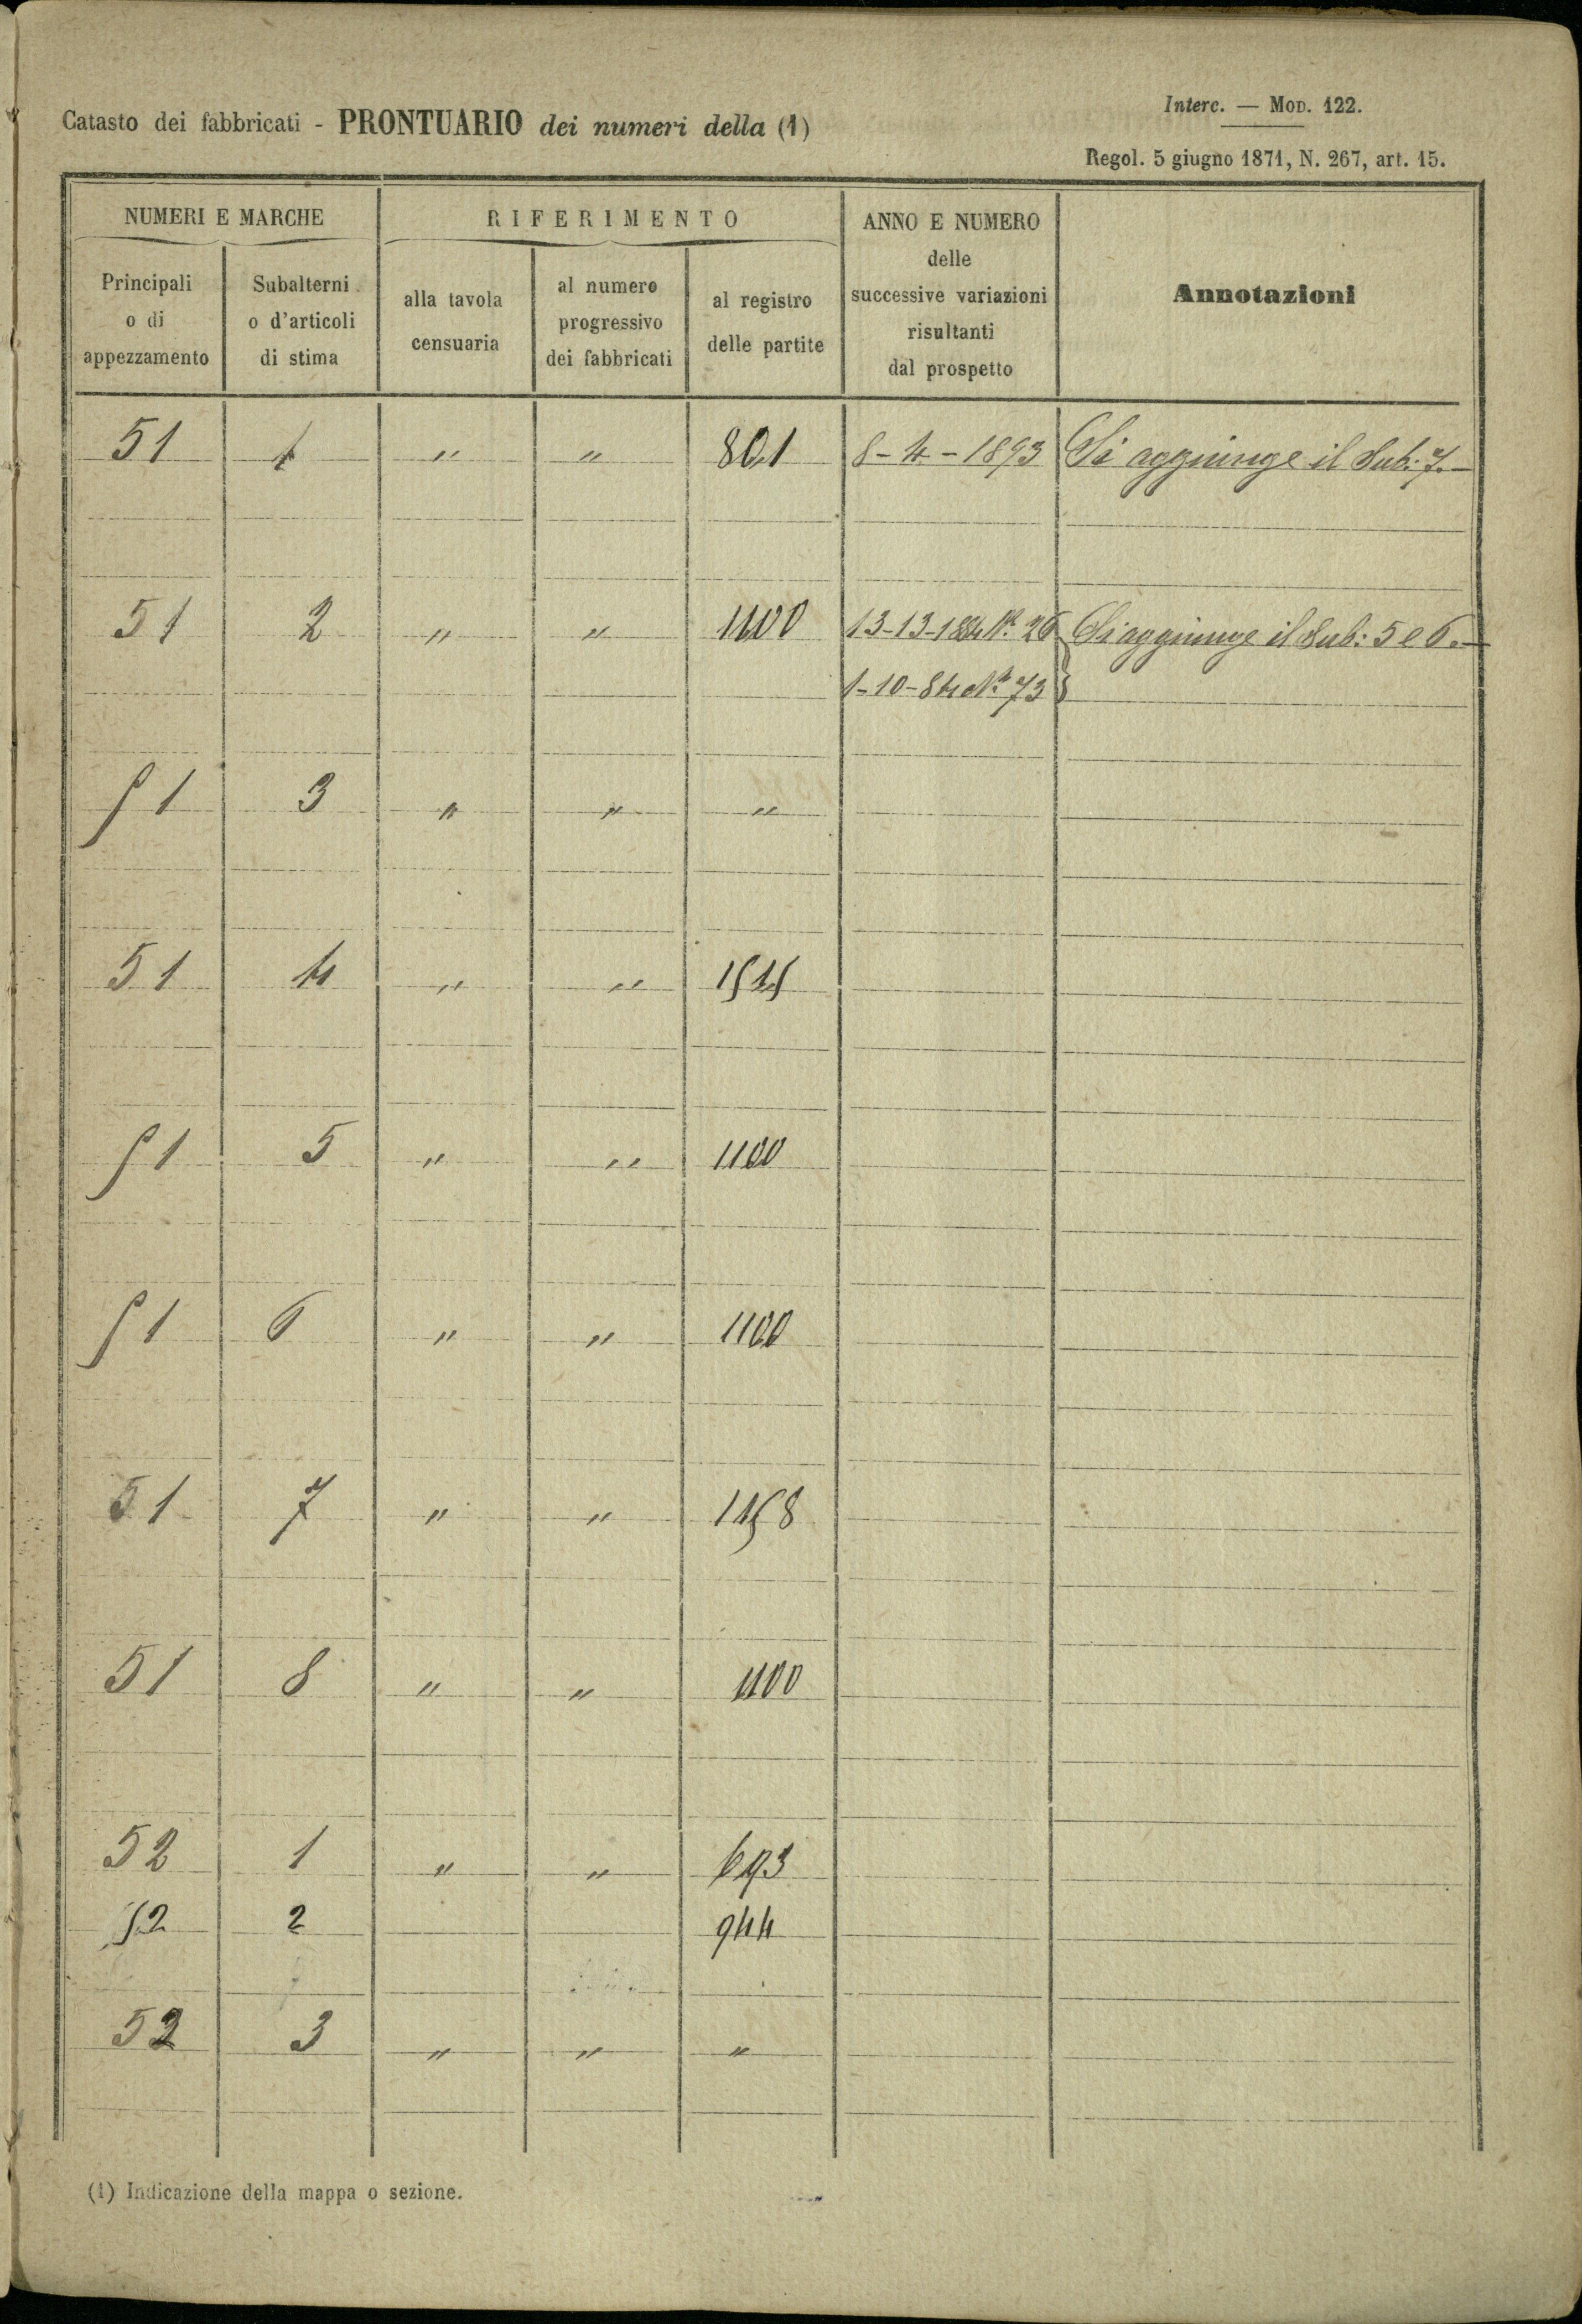 Catasto dei fabbricati - PRONTUARIO dei numeri della (1)
Interc. — Mod. 122.
Regol. 5 giugno 1871, N. 267, art. 15.
NUMERI E MARCHE
RIFERIMENTO
ANNO E NUMERO
delle
successive variazioni
risultanti
dal prospetto
Annotazioni
Principali
o di
appezzamento
Subalterni
o d'articoli
di stima
alla tavola
censuaria
al numero
progressivo
dei fabbricati
al registro
delle partite
51 1 " " 801 8-4-1893 Si aggiunge il Sub: 7.—
51 2 " " 1100 13-13-1884 N.º 26 Si aggiunge il Sub: 5 e 6.—
1-10-84 N.º 73
51 3 " " "
51 4 " " 1515
51 5 " " 1100
51 6 " " 1100
51 7 " " 1158
51 8 " " 1100
52 1 " "
52 2 944
52 3 " " "
(1) Indicazione della mappa o sezione.